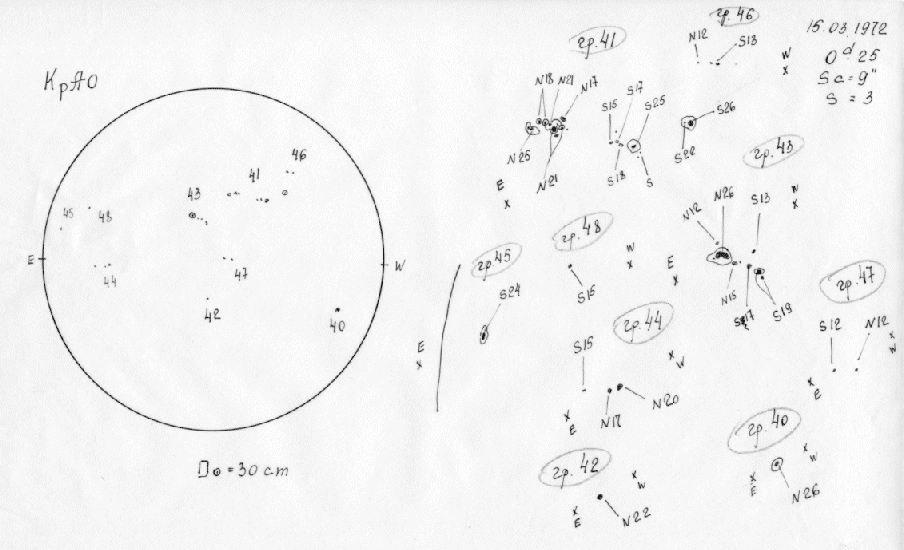 КрАО
15.03.1972
0ᵈ 25
Sa = 9"
S = 3
45
48
44
43
41
46
47
42
40
E
W
D⊙ = 30 cm
гр.41
N18 N21 N17
N25
N21
S15 S17 S25
S18 S
E
x
гр.46
N12 S13
W
x
S26
S22
гр.43
N12 N26 S13
W
x
E
x
N15
S17
S19
гр.45
S24
E
x
гр.48
S15
W
x
гр.44
S15
N20
x W
x
E
гр.47
S12 N12
x
W
x
E
гр.42
N22
x W
x
E
гр.40
N26
x W
x
E